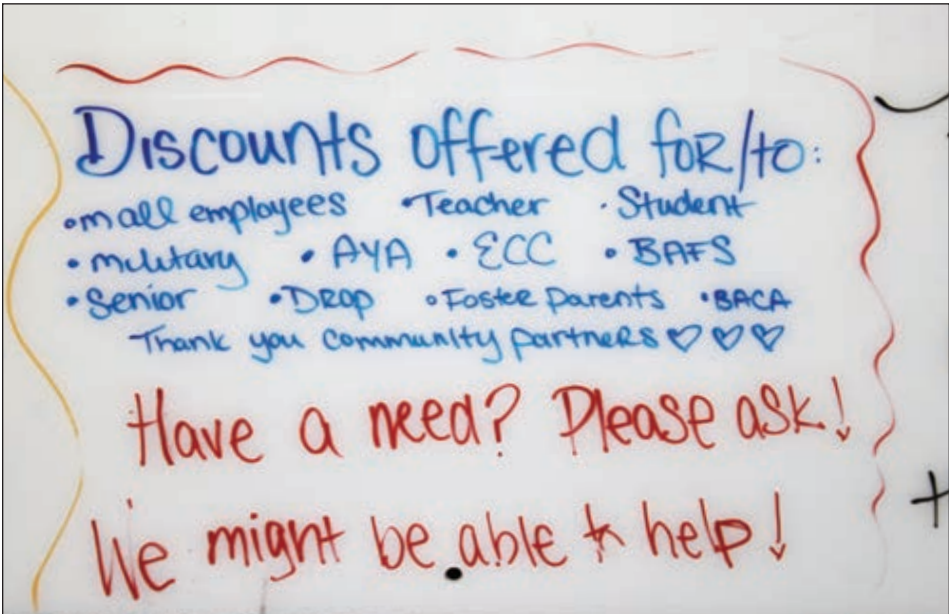 Discounts offered foR/to:
• mall employees • Teacher • Student
• military • AYA • ECC • BAFS
• Senior • DROP • Foster Parents • BACA
Thank you community partners ♡ ♡ ♡
Have a need? Please ask!
We might be able to help!